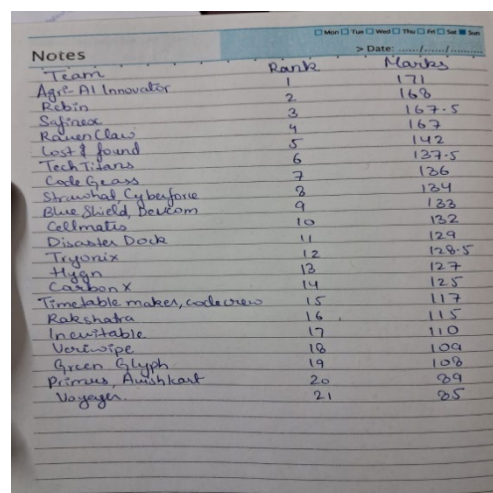 Mon Tue Wed Thu Fri Sat Sun
Notes > Date: ....../....../..........
Team Rank Marks
Agri-AI Innovator 1 171
Rebin 2 168
Safinex 3 167.5
RavenClaw 4 167
Lost & found 5 142
TechTitans 6 137.5
Code Geass 7 136
Strawhat, Cyberforce 8 134
Blue Shield, Devcom 9 133
Cellmatis 10 132
Disaster Dock 11 129
Tryonix 12 128.5
Hygn 13 127
CarbonX 14 125
Timetable maker, codecrew 15 117
Rakshatra 16 115
Inevitable 17 110
Veriwipe 18 109
Green Glyph 19 108
Primus, Avishkart 20 89
Voyager. 21 85